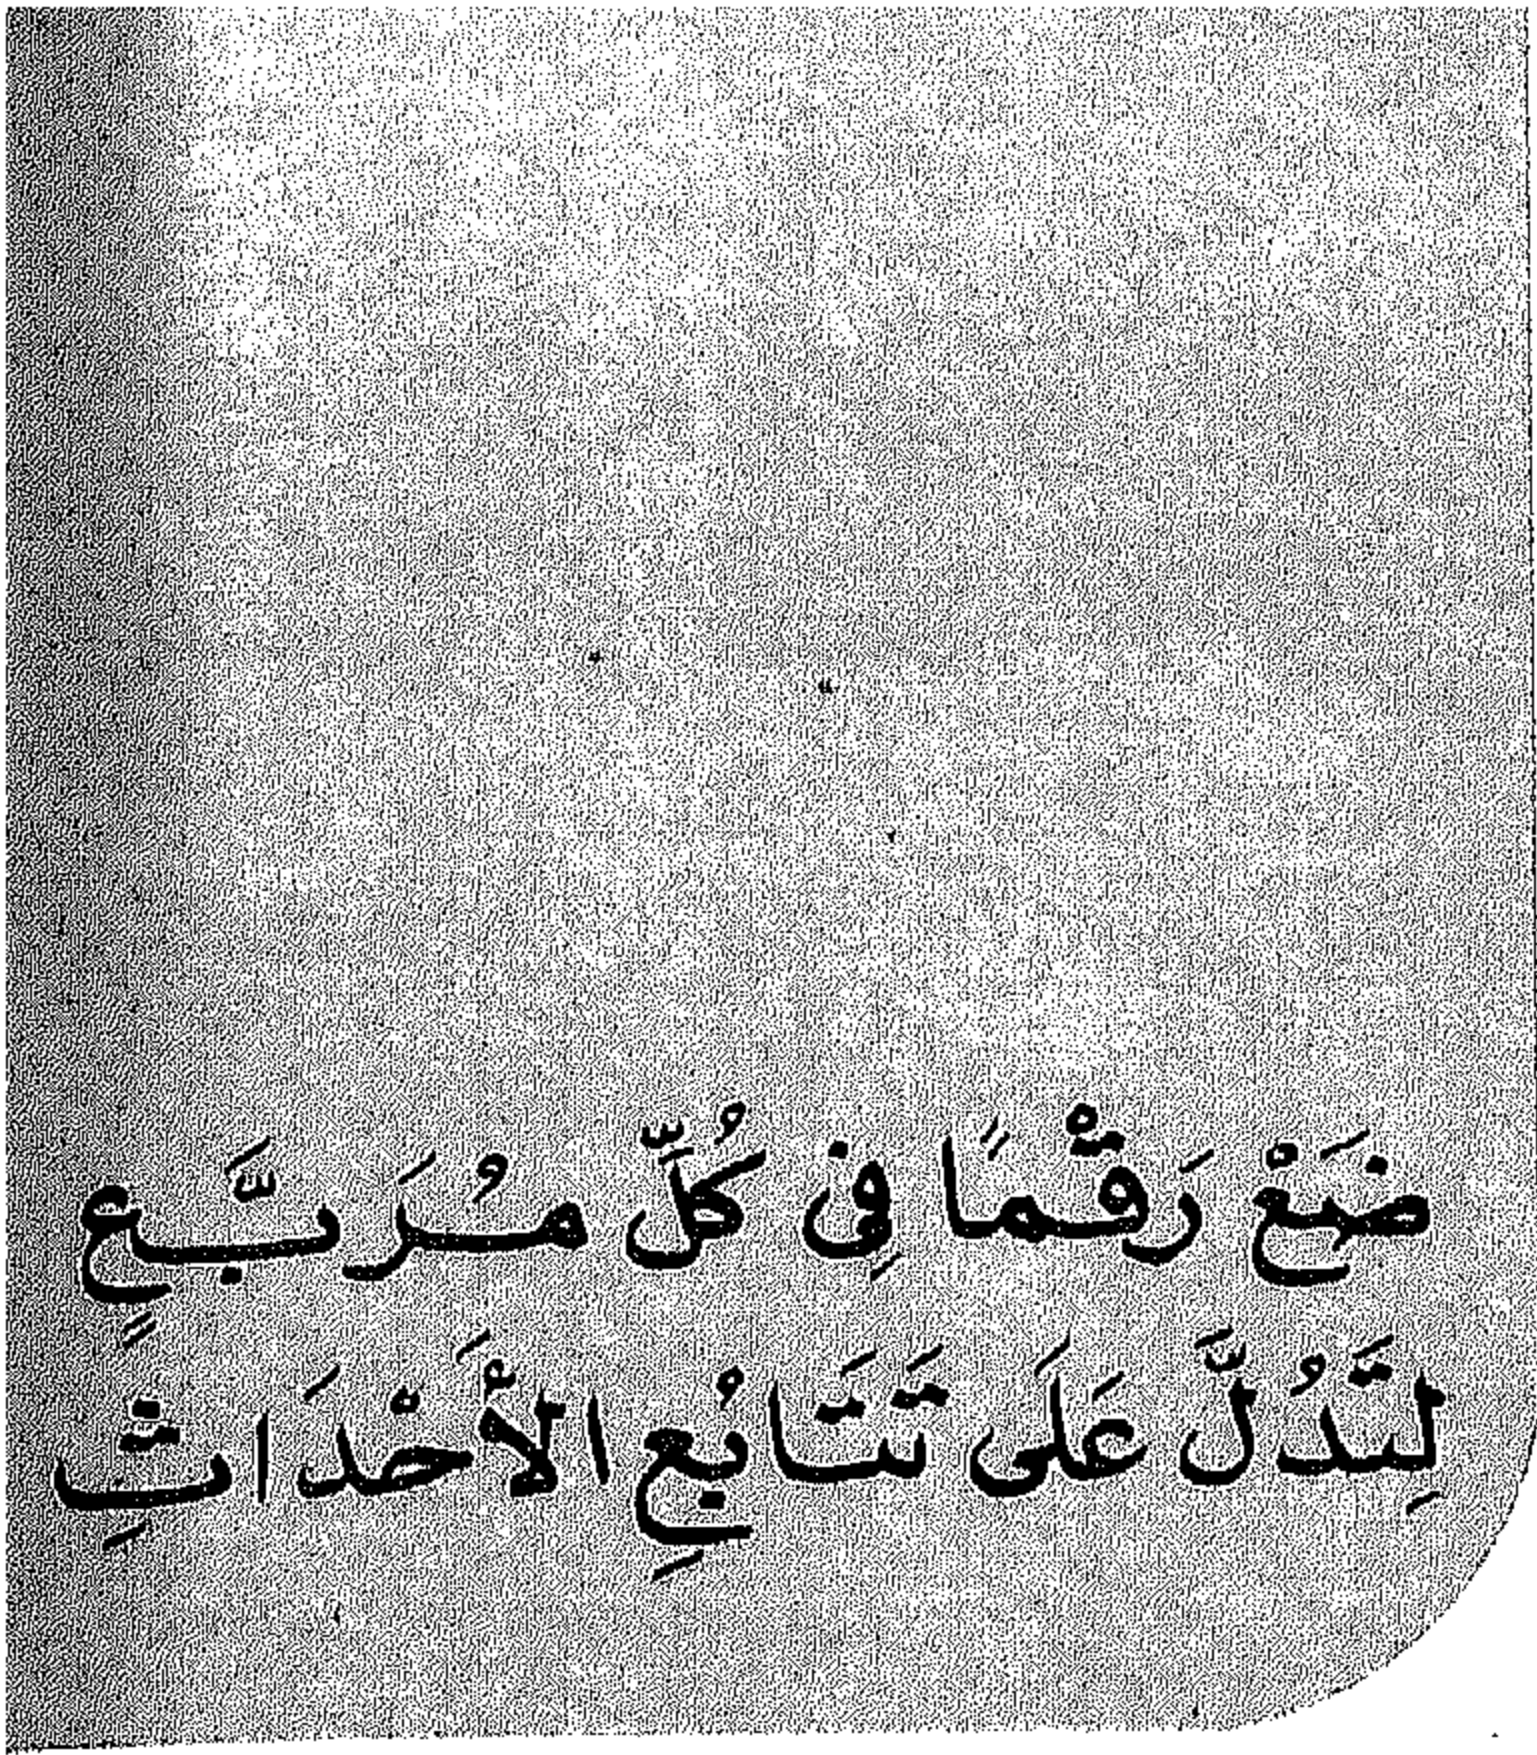 ضَعْ رَقْمًا فِى كُلِّ مُرَبَّعٍ
لِتَدُلَّ عَلَى تَتَابُعِ الأَحْدَاثِ